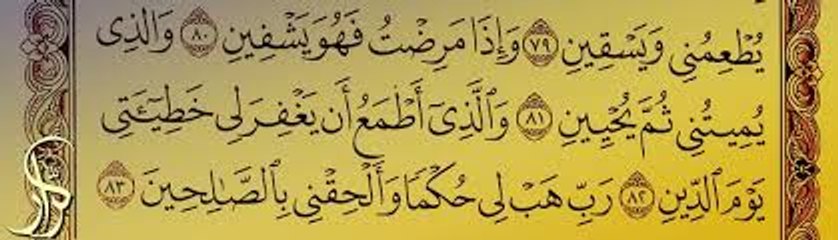 يُطْعِمُنِى وَيَسْقِينِ ﴿٧٩﴾ وَإِذَا مَرِضْتُ فَهُوَ يَشْفِينِ ﴿٨٠﴾ وَالَّذِى
يُمِيتُنِى ثُمَّ يُحْيِينِ ﴿٨١﴾ وَٱلَّذِىٓ أَطْمَعُ أَن يَغْفِرَ لِى خَطِيٓـَٔتِى
يَوْمَ ٱلدِّينِ ﴿٨٢﴾ رَبِّ هَبْ لِى حُكْمًا وَأَلْحِقْنِى بِٱلصَّـٰلِحِينَ ﴿٨٣﴾